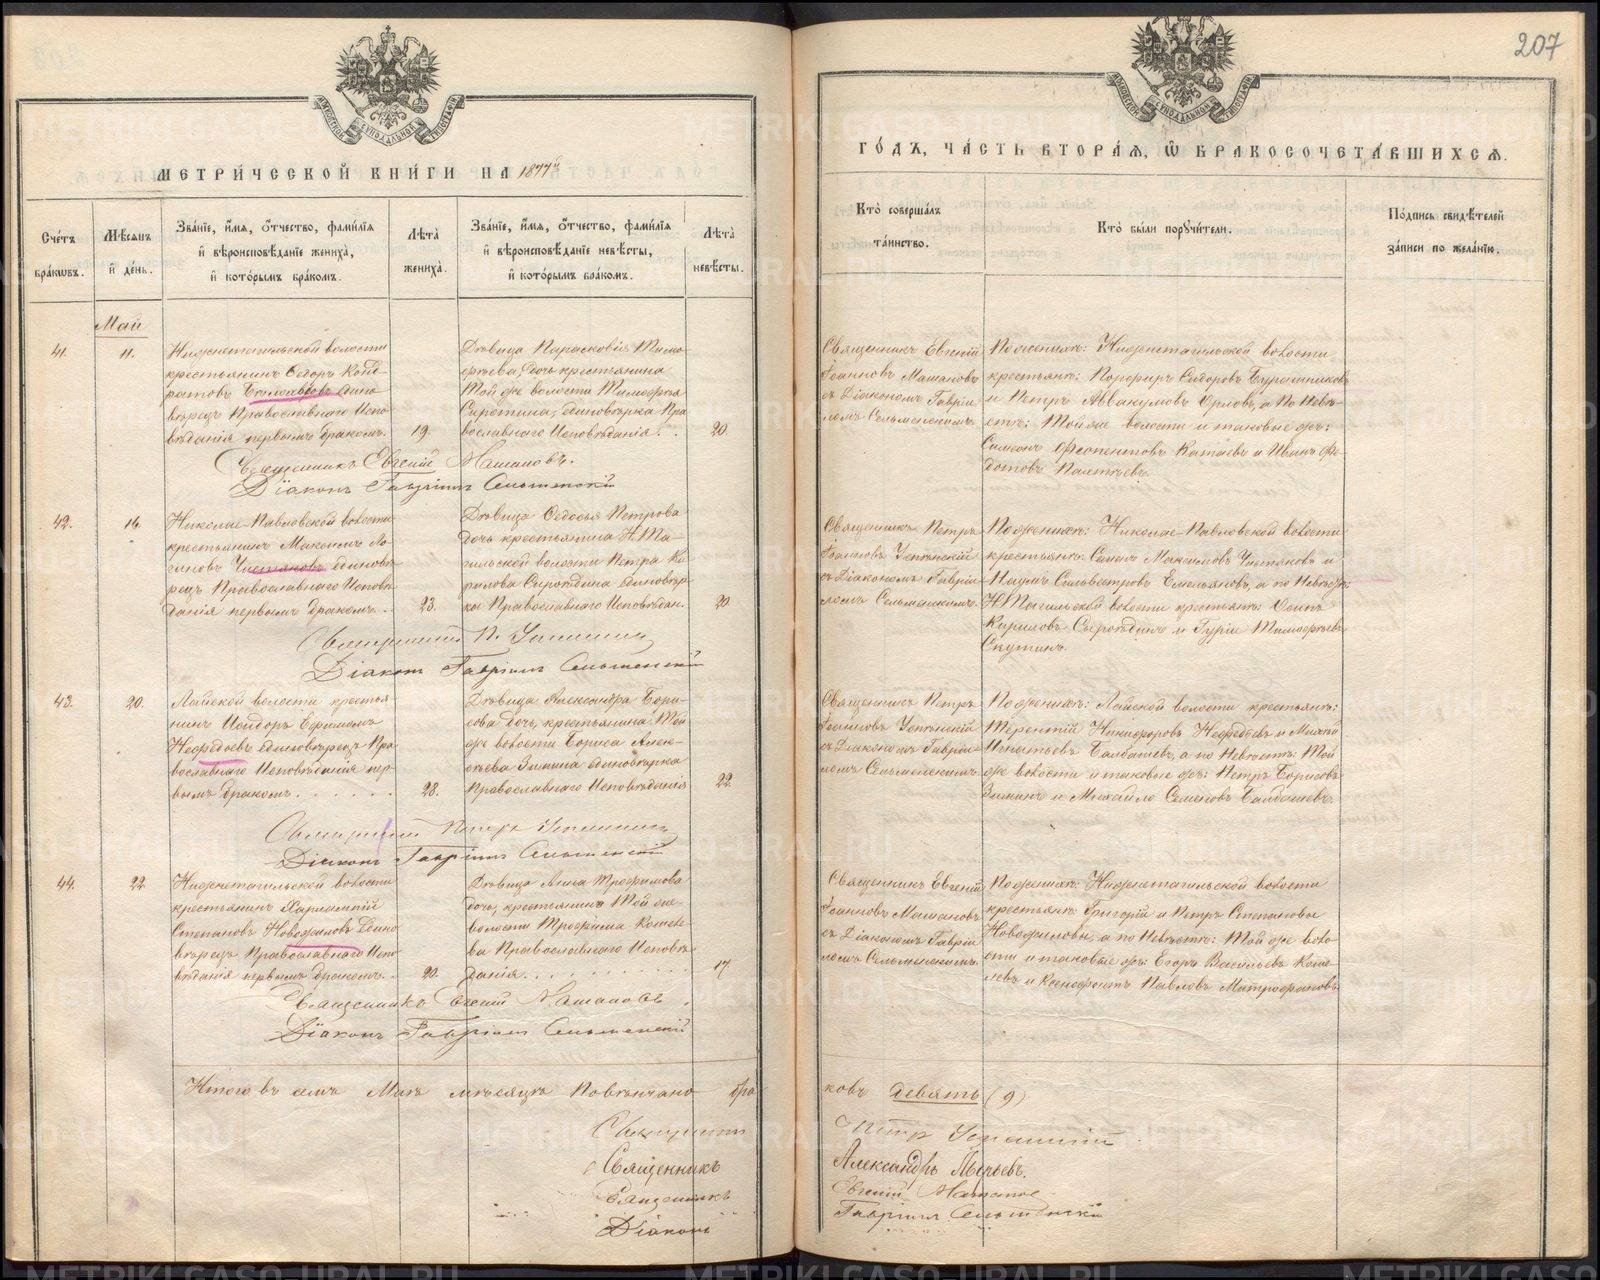 207
МЕТРИ́ЧЕСКОЙ КНИ́ГИ НА 1877й
ГО́ДЪ, ЧА́СТЬ ВТОРА́Я, Ѿ БРАКОСОЧЕТА́ВШИХСЯ.
Сче́тъ бра́кѡвъ.
Мѣ́сяцъ и҆ де́нь.
Зва́нїе, и҆́мя, ѻ҆́тчество, фами́лїя и҆ вѣроисповѣ́данїе жениха̀, и҆ кото́рымъ бра́комъ.
Лѣ́та жениха̀.
Зва́нїе, и҆́мя, ѻ҆́тчество, фами́лїя и҆ вѣроисповѣ́данїе невѣ́сты, и҆ кото́рымъ бра́комъ.
Лѣ́та невѣ́сты.
Кто̀ соверша́лъ та́инство.
Кто̀ бы́ли порꙋчи́тели.
По́дпись свидѣ́телей за́писи по жела́нїю.
Май
41.
11.
Нижнетагильской волости
крестьянинъ Ѳедоръ Конд-
ратовъ едино-
вѣрецъ Православнаго Испо-
вѣданія первымъ бракомъ.
19.
Дѣвица Парасковія Тимо-
фѣева, дочь крестьянина
той же волости Тимофѣя
Сиротина, единовѣрка Пра-
вославнаго Исповѣданія.
20.
Священникъ Евгеній
Іоанновъ Машановъ
съ Діакономъ Гаврiи-
ломъ Сельменскимъ.
По женихѣ: Нижнетагильской волости
крестьяне: Порфиръ Сидоровъ
и Петръ Аввакумовъ Орловъ, а по Невѣ-
стѣ: той же волости и таковые же:
Симеонъ Катаевъ и Иванъ Фе-
дотовъ
Священникъ Евгеній Машановъ.
Діаконъ Гавріилъ Сельменскій
42.
16.
Николае-Павловской волости
крестьянинъ Максимъ Ло-
гиновъ Чистяковъ единовѣ-
рецъ Православнаго Исповѣ-
данія первымъ бракомъ.
23.
Дѣвица Ѳедосья Петрова
дочь крестьянина Н.Та-
гильской волости Петра Ки-
рилова Сыроѣдина единовѣр-
ка Православнаго Исповѣдан.
20.
Священникъ Петръ
Іоанновъ Успенскій
съ Діакономъ Гавріи-
ломъ Сельменскимъ.
По женихѣ: Николае-Павловской волости
крестьяне: Максимовъ Чистяковъ и
Наумъ Сильвестровъ Емельяновъ, а по Невѣстѣ:
Н.Тагильской волости крестьяне: Осипъ
Кириловъ Сыроѣдинъ и Гурій Тимофѣевъ
Священникъ П. Успенскій
Діаконъ Гавріилъ Сельменскій
43.
20.
Лайской волости крестья-
нинъ Исидоръ Ефимовъ
Нефедьевъ единовѣрецъ Пра-
вославнаго Исповѣданія пер-
вымъ бракомъ.
28.
Дѣвица Александра Бори-
сова дочь крестьянина той
же волости Бориса Алек-
сѣева Зимина единовѣрка
Православнаго Исповѣданія
22.
Священникъ Петръ
Іоанновъ Успенскій
съ Діакономъ Гавріи-
ломъ Сельменскимъ
По женихѣ: Лайской волости крестьяне:
Терентій Никифоровъ Нефедьевъ и
Игнатьевъ Балдашевъ, а по Невѣстѣ: той
же волости и таковые же: Петръ Борисовъ
Зиминъ и Михайло Семеновъ Балдашевъ.
Священникъ Петръ Успенскій
Діаконъ Гавріилъ Сельменскій
44.
22
Нижнетагильской волости
крестьянинъ Харлампій
Степановъ Новофиловъ Едино
вѣрецъ Православнаго Испо
вѣданія первымъ бракомъ.
20.
Дѣвица Анна Трофимова
дочь крестьянина той же
волости Трофима Кошеле-
ва Православнаго Исповѣ-
данія.
17
Священникъ Евгеній
Іоанновъ Машановъ
съ Діакономъ Гавріи
ломъ Сельменскимъ.
По женихѣ: Нижнетагильской волости
крестьяне: Григорій и Петръ Степановы
Новофиловы, а по Невѣстѣ: той же воло-
сти и таковые же: Егоръ Васильевъ Коше-
левъ и Ксенофонтъ Павловъ Митрофановъ
Священникъ Евгеній Машановъ.
Діаконъ Гавріилъ Сельменскій
Итого въ семъ Маѣ мѣсяцѣ повѣнчано бра
ковъ девять (9)
Священникъ Петръ Успенскій
Священникъ Александръ
Священникъ Евгеній Машановъ
Діаконъ Гавріилъ Сельменскій
METRIKI.GASO-URAL.RU